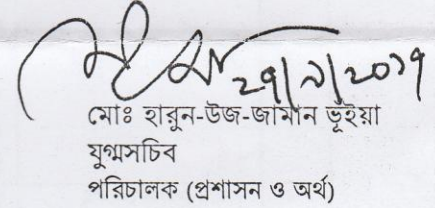 ২৭/৯/২০১৭
মোঃ হারুন-উজ-জামান ভূঁইয়া
যুগ্মসচিব
পরিচালক (প্রশাসন ও অর্থ)